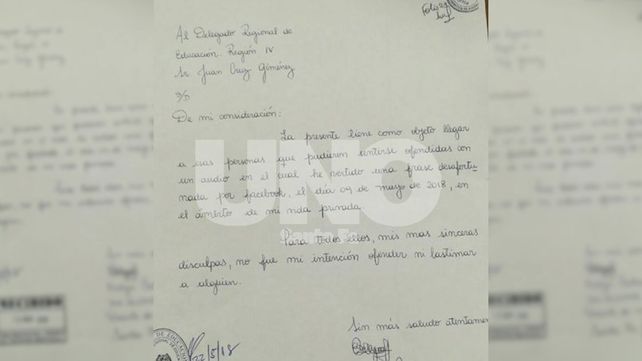 Al Delegado Regional de
Educación. Región IV
Sr. Juan Cruz Giménez
S/D
De mi consideración:
La presente tiene como objeto llegar
a esas personas que pudieron sentirse ofendidas con
un audio en el cual he vertido una frase desafortu-
nada por facebook, el día 09 de mayo de 2018, en
el ámbito de mi vida privada.
UNO
Santa Fe
Para todos ellos, mis mas sinceras
disculpas, no fue mi intención ofender ni lastimar
a alguien.
Sin más saludo atentamen
22/5/18